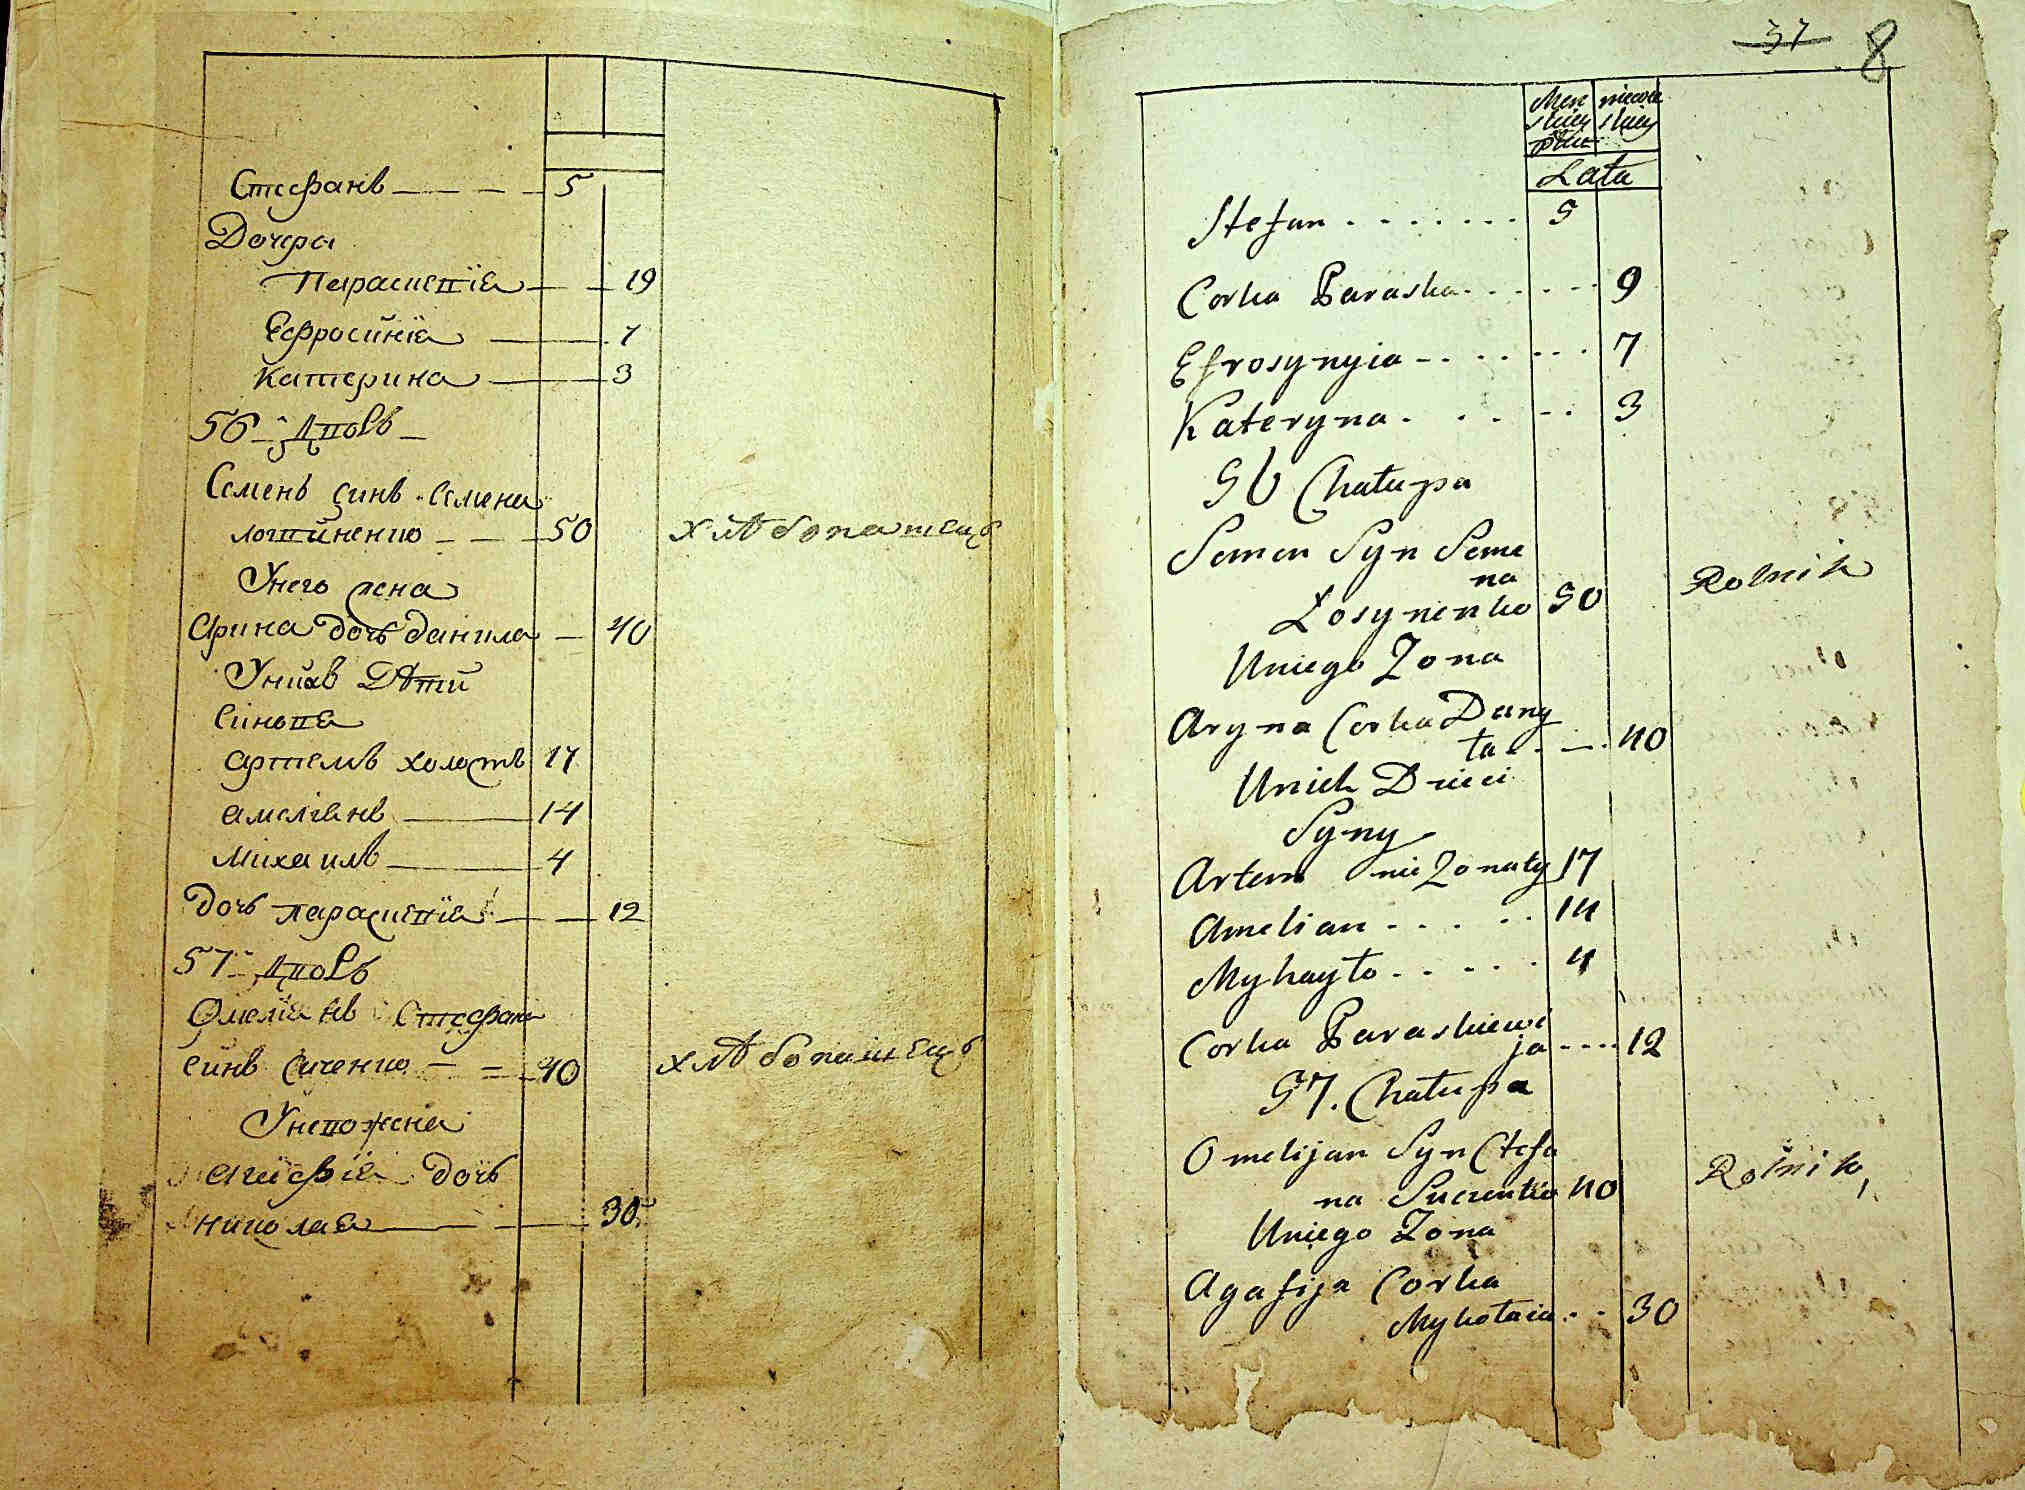 Стефанъ 5
Дочери
Параскевiя 19
Ефросинiя 7
Катерина 3
56 Дворъ
Семенъ синъ Семена
50 хлѣбопашецъ
У него жена
Арина дочь данила 40
У нихъ Дѣти
Синовя
артемъ холостъ 17
амелiянъ 14
михаилъ 4
Дочь параскевiя 12
57 Дворъ
Омелiянъ Стефана
синъ 40 хлѣбопашецъ
У него жена
агафiя дочь
николая 30
37 8
Męz niewie
skiey skiey
płci
Lata
Stefan 5
Corka Paraska 9
Efrosynyia 7
Kateryna 3
56 Chałupa
Semen Syn Seme
na
Łosynenko 50 Rolnik
Uniego Zona
Aryna Corka Dany
ła 40
Unich Dzieci
Syny
Artem nie Zonaty 17
Amelian 14
Myhayło 4
Corka Paraskiewi
ja 12
57. Chałupa
Omelijan Syn Stefa
na 40 Rolnik,
Uniego Zona
Agafija Corka
Mykołaia 30